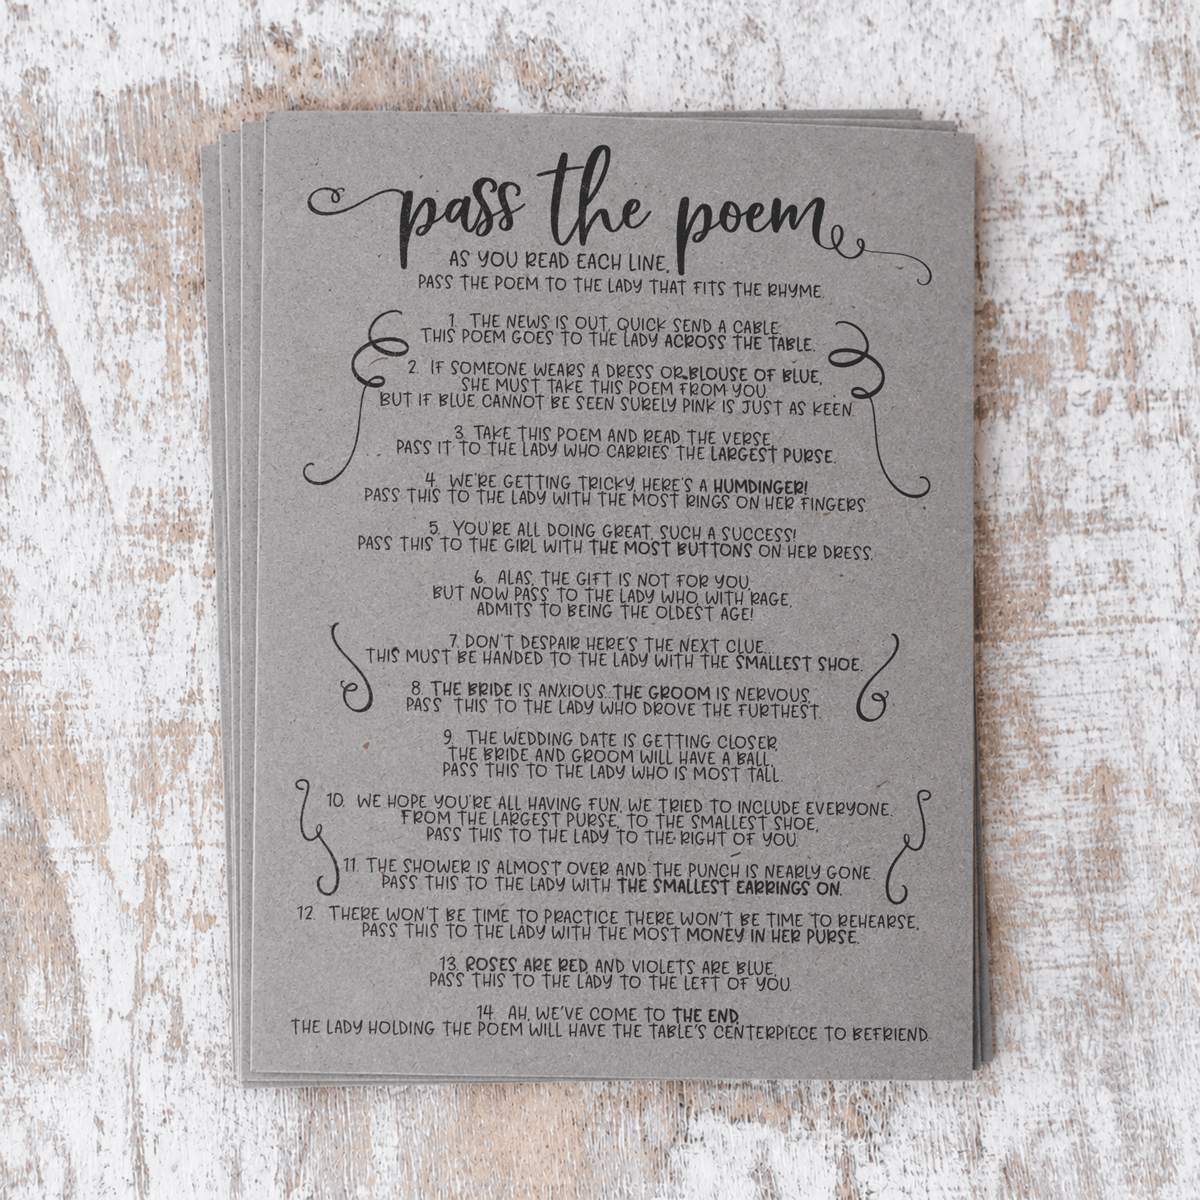 pass the poem
AS YOU READ EACH LINE,
PASS THE POEM TO THE LADY THAT FITS THE RHYME.
1. THE NEWS IS OUT, QUICK SEND A CABLE.
THIS POEM GOES TO THE LADY ACROSS THE TABLE.
2. IF SOMEONE WEARS A DRESS OR BLOUSE OF BLUE,
SHE MUST TAKE THIS POEM FROM YOU.
BUT IF BLUE CANNOT BE SEEN SURELY PINK IS JUST AS KEEN.
3. TAKE THIS POEM AND READ THE VERSE,
PASS IT TO THE LADY WHO CARRIES THE LARGEST PURSE.
4. WE'RE GETTING TRICKY, HERE'S A HUMDINGER!
PASS THIS TO THE LADY WITH THE MOST RINGS ON HER FINGERS.
5. YOU'RE ALL DOING GREAT, SUCH A SUCCESS!
PASS THIS TO THE GIRL WITH THE MOST BUTTONS ON HER DRESS.
6. ALAS, THE GIFT IS NOT FOR YOU,
BUT NOW PASS TO THE LADY WHO, WITH RAGE,
ADMITS TO BEING THE OLDEST AGE!
7. DON'T DESPAIR HERE'S THE NEXT CLUE...
THIS MUST BE HANDED TO THE LADY WITH THE SMALLEST SHOE.
8. THE BRIDE IS ANXIOUS...THE GROOM IS NERVOUS,
PASS THIS TO THE LADY WHO DROVE THE FURTHEST.
9. THE WEDDING DATE IS GETTING CLOSER,
THE BRIDE AND GROOM WILL HAVE A BALL,
PASS THIS TO THE LADY WHO IS MOST TALL.
10. WE HOPE YOU'RE ALL HAVING FUN, WE TRIED TO INCLUDE EVERYONE.
FROM THE LARGEST PURSE, TO THE SMALLEST SHOE,
PASS THIS TO THE LADY TO THE RIGHT OF YOU.
11. THE SHOWER IS ALMOST OVER AND THE PUNCH IS NEARLY GONE.
PASS THIS TO THE LADY WITH THE SMALLEST EARRINGS ON.
12. THERE WON'T BE TIME TO PRACTICE THERE WON'T BE TIME TO REHEARSE,
PASS THIS TO THE LADY WITH THE MOST MONEY IN HER PURSE.
13. ROSES ARE RED, AND VIOLETS ARE BLUE,
PASS THIS TO THE LADY TO THE LEFT OF YOU.
14. AH, WE'VE COME TO THE END,
THE LADY HOLDING THE POEM WILL HAVE THE TABLE'S CENTERPIECE TO BEFRIEND.